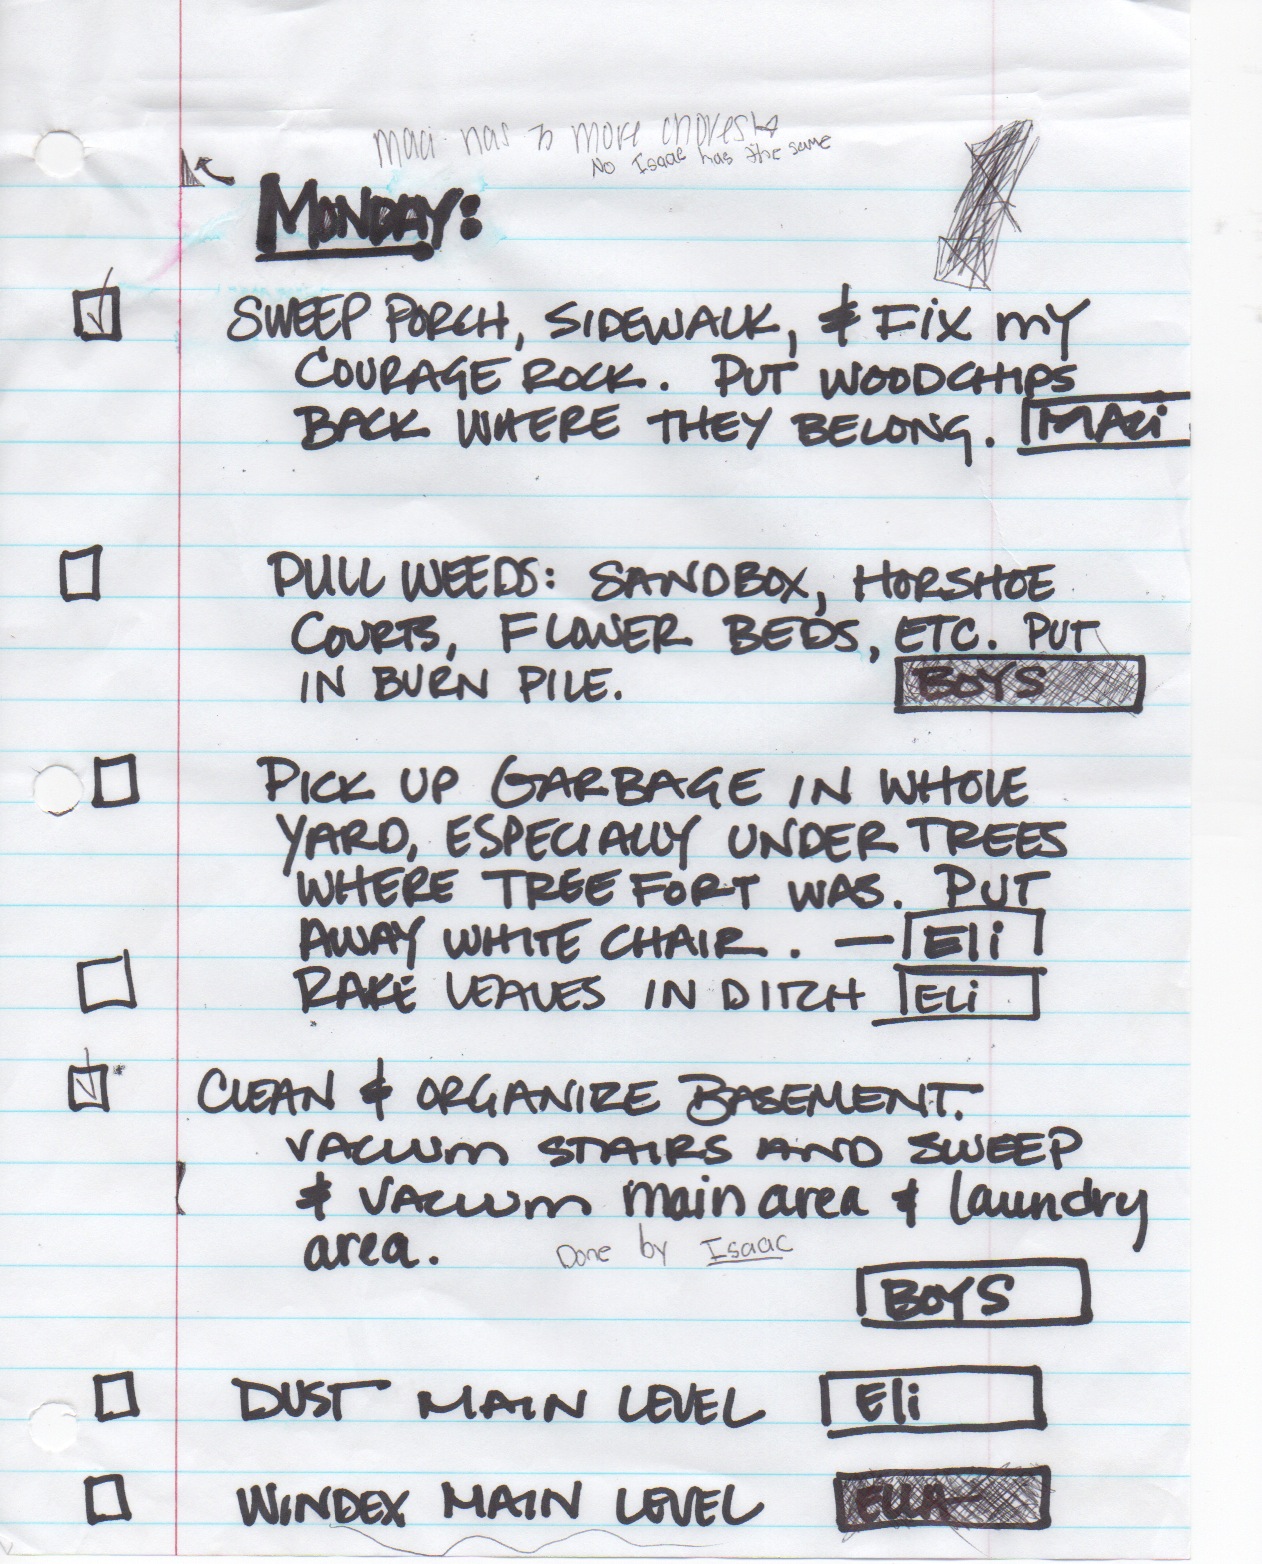 Maci has more chores
No Isaac has the same
MONDAY:
SWEEP PORCH, SIDEWALK, & FIX MY
COURAGE ROCK. PUT WOODCHIPS
BACK WHERE THEY BELONG. MACi
PULL WEEDS: SANDBOX, HORSHOE
COURTS, FLOWER BEDS, ETC. PUT
IN BURN PILE. BOYS
PICK UP GARBAGE IN WHOLE
YARD, ESPECIALLY UNDER TREES
WHERE TREE FORT WAS. PUT
AWAY WHITE CHAIR. — Eli
RAKE LEAVES IN DITCH ELi
CLEAN & ORGANIZE BASEMENT.
VACUUM STAIRS AND SWEEP
& VACUUM main area & laundry
area. Done by Isaac
BOYS
DUST MAIN LEVEL Eli
WINDEX MAIN LEVEL ELLA